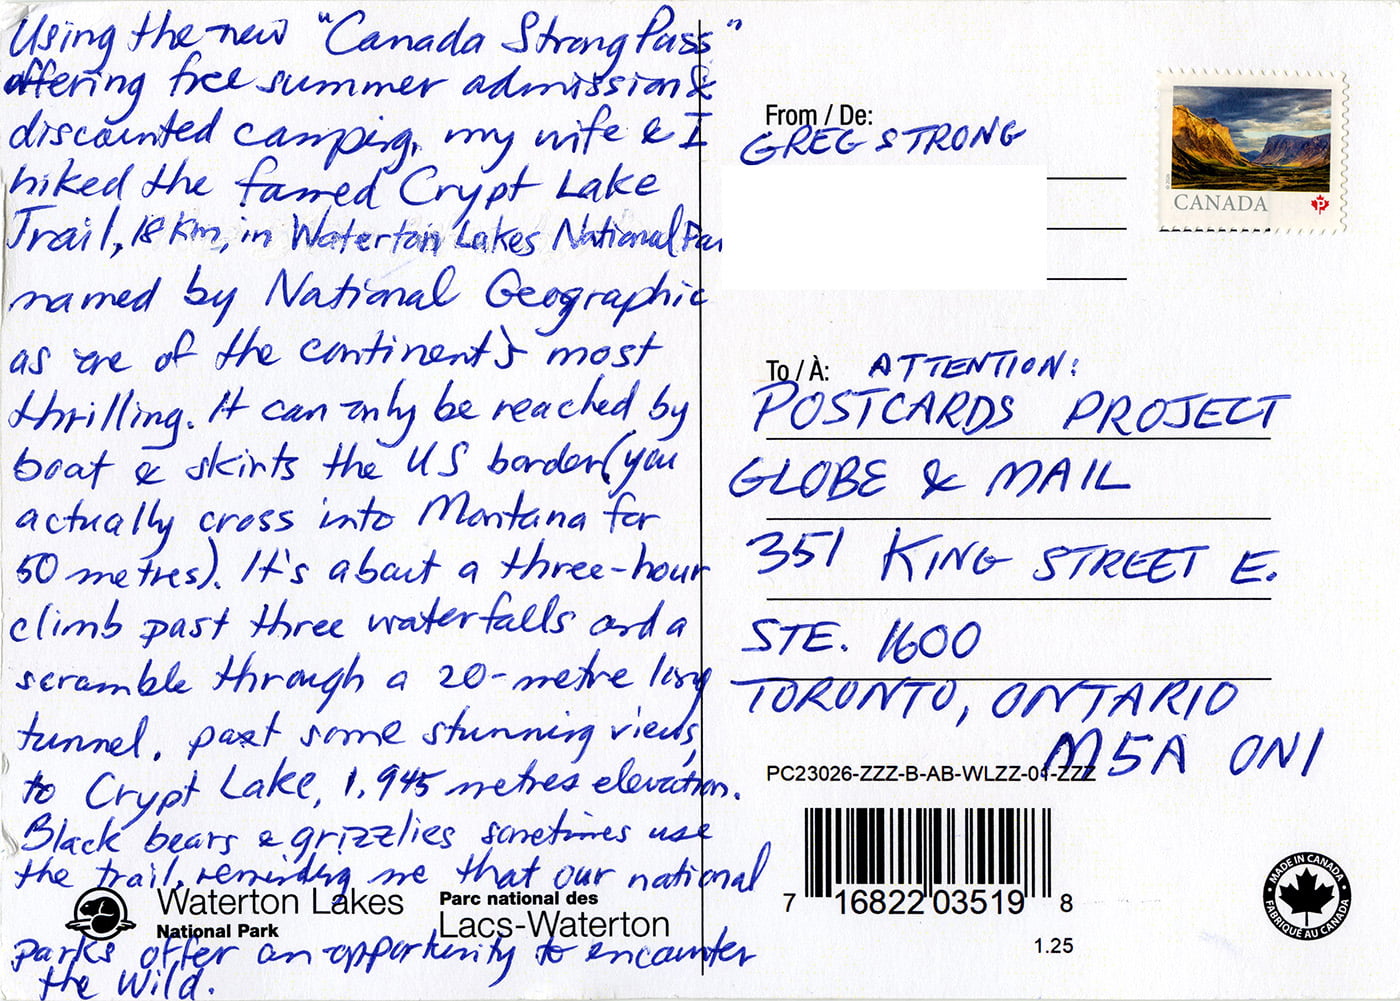 Using the new "Canada Strong Pass"
offering free summer admission &
discounted camping, my wife & I
hiked the famed Crypt Lake
Trail, 18 Km, in Waterton Lakes National Par
named by National Geographic
as one of the continent's most
thrilling. It can only be reached by
boat & skirts the US border (you
actually cross into Montana for
50 metres). It's about a three-hour
climb past three waterfalls and a
scramble through a 20-metre long
tunnel, past some stunning views,
to Crypt Lake, 1,945 metres elevation.
Black bears & grizzlies sometimes use
the trail, reminding me that our national
parks offer an opportunity to encounter
the wild.
Waterton Lakes
National Park
Parc national des
Lacs-Waterton
From / De:
GREG STRONG
CANADA
P
To / À: ATTENTION:
POSTCARDS PROJECT
GLOBE & MAIL
351 KING STREET E.
STE. 1600
TORONTO, ONTARIO
M5A 0N1
PC23026-ZZZ-B-AB-WLZZ-01-ZZZ
7 16822 03519 8
1.25
MADE IN CANADA
FABRIQUÉ AU CANADA